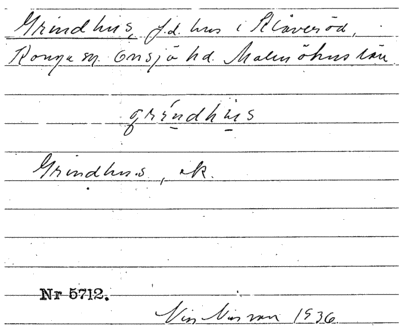 Grindhus, f.d. hus i Klåveröd,
Konga sn. Onsjö hd. Malmöhus län
gríndhùs
Grindhus, ek.
Nr 5712.
1936